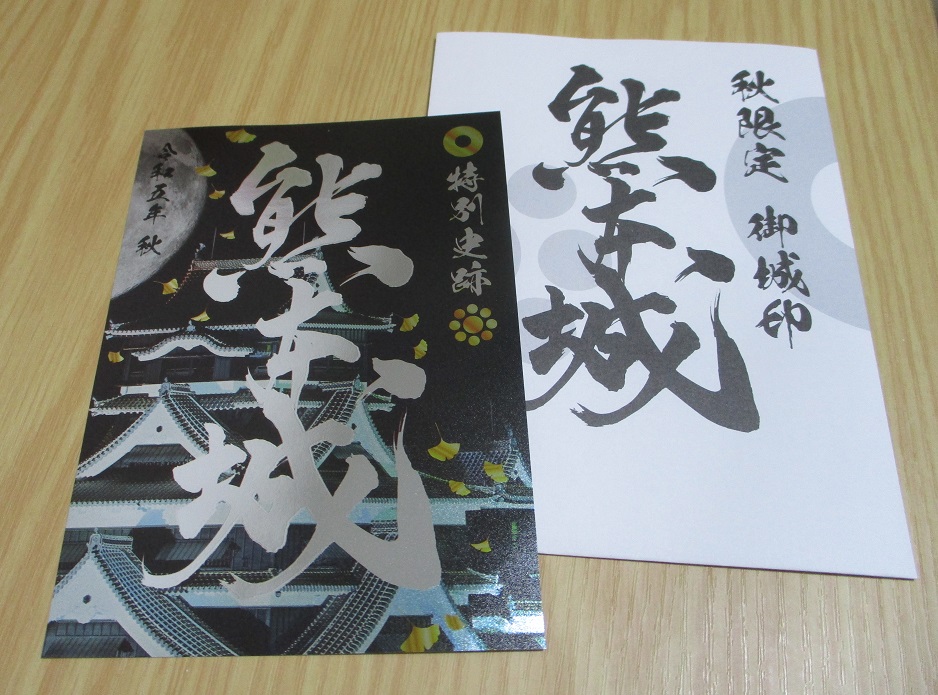 特別史跡
熊本城
令和五年 秋
秋限定 御城印
熊本城